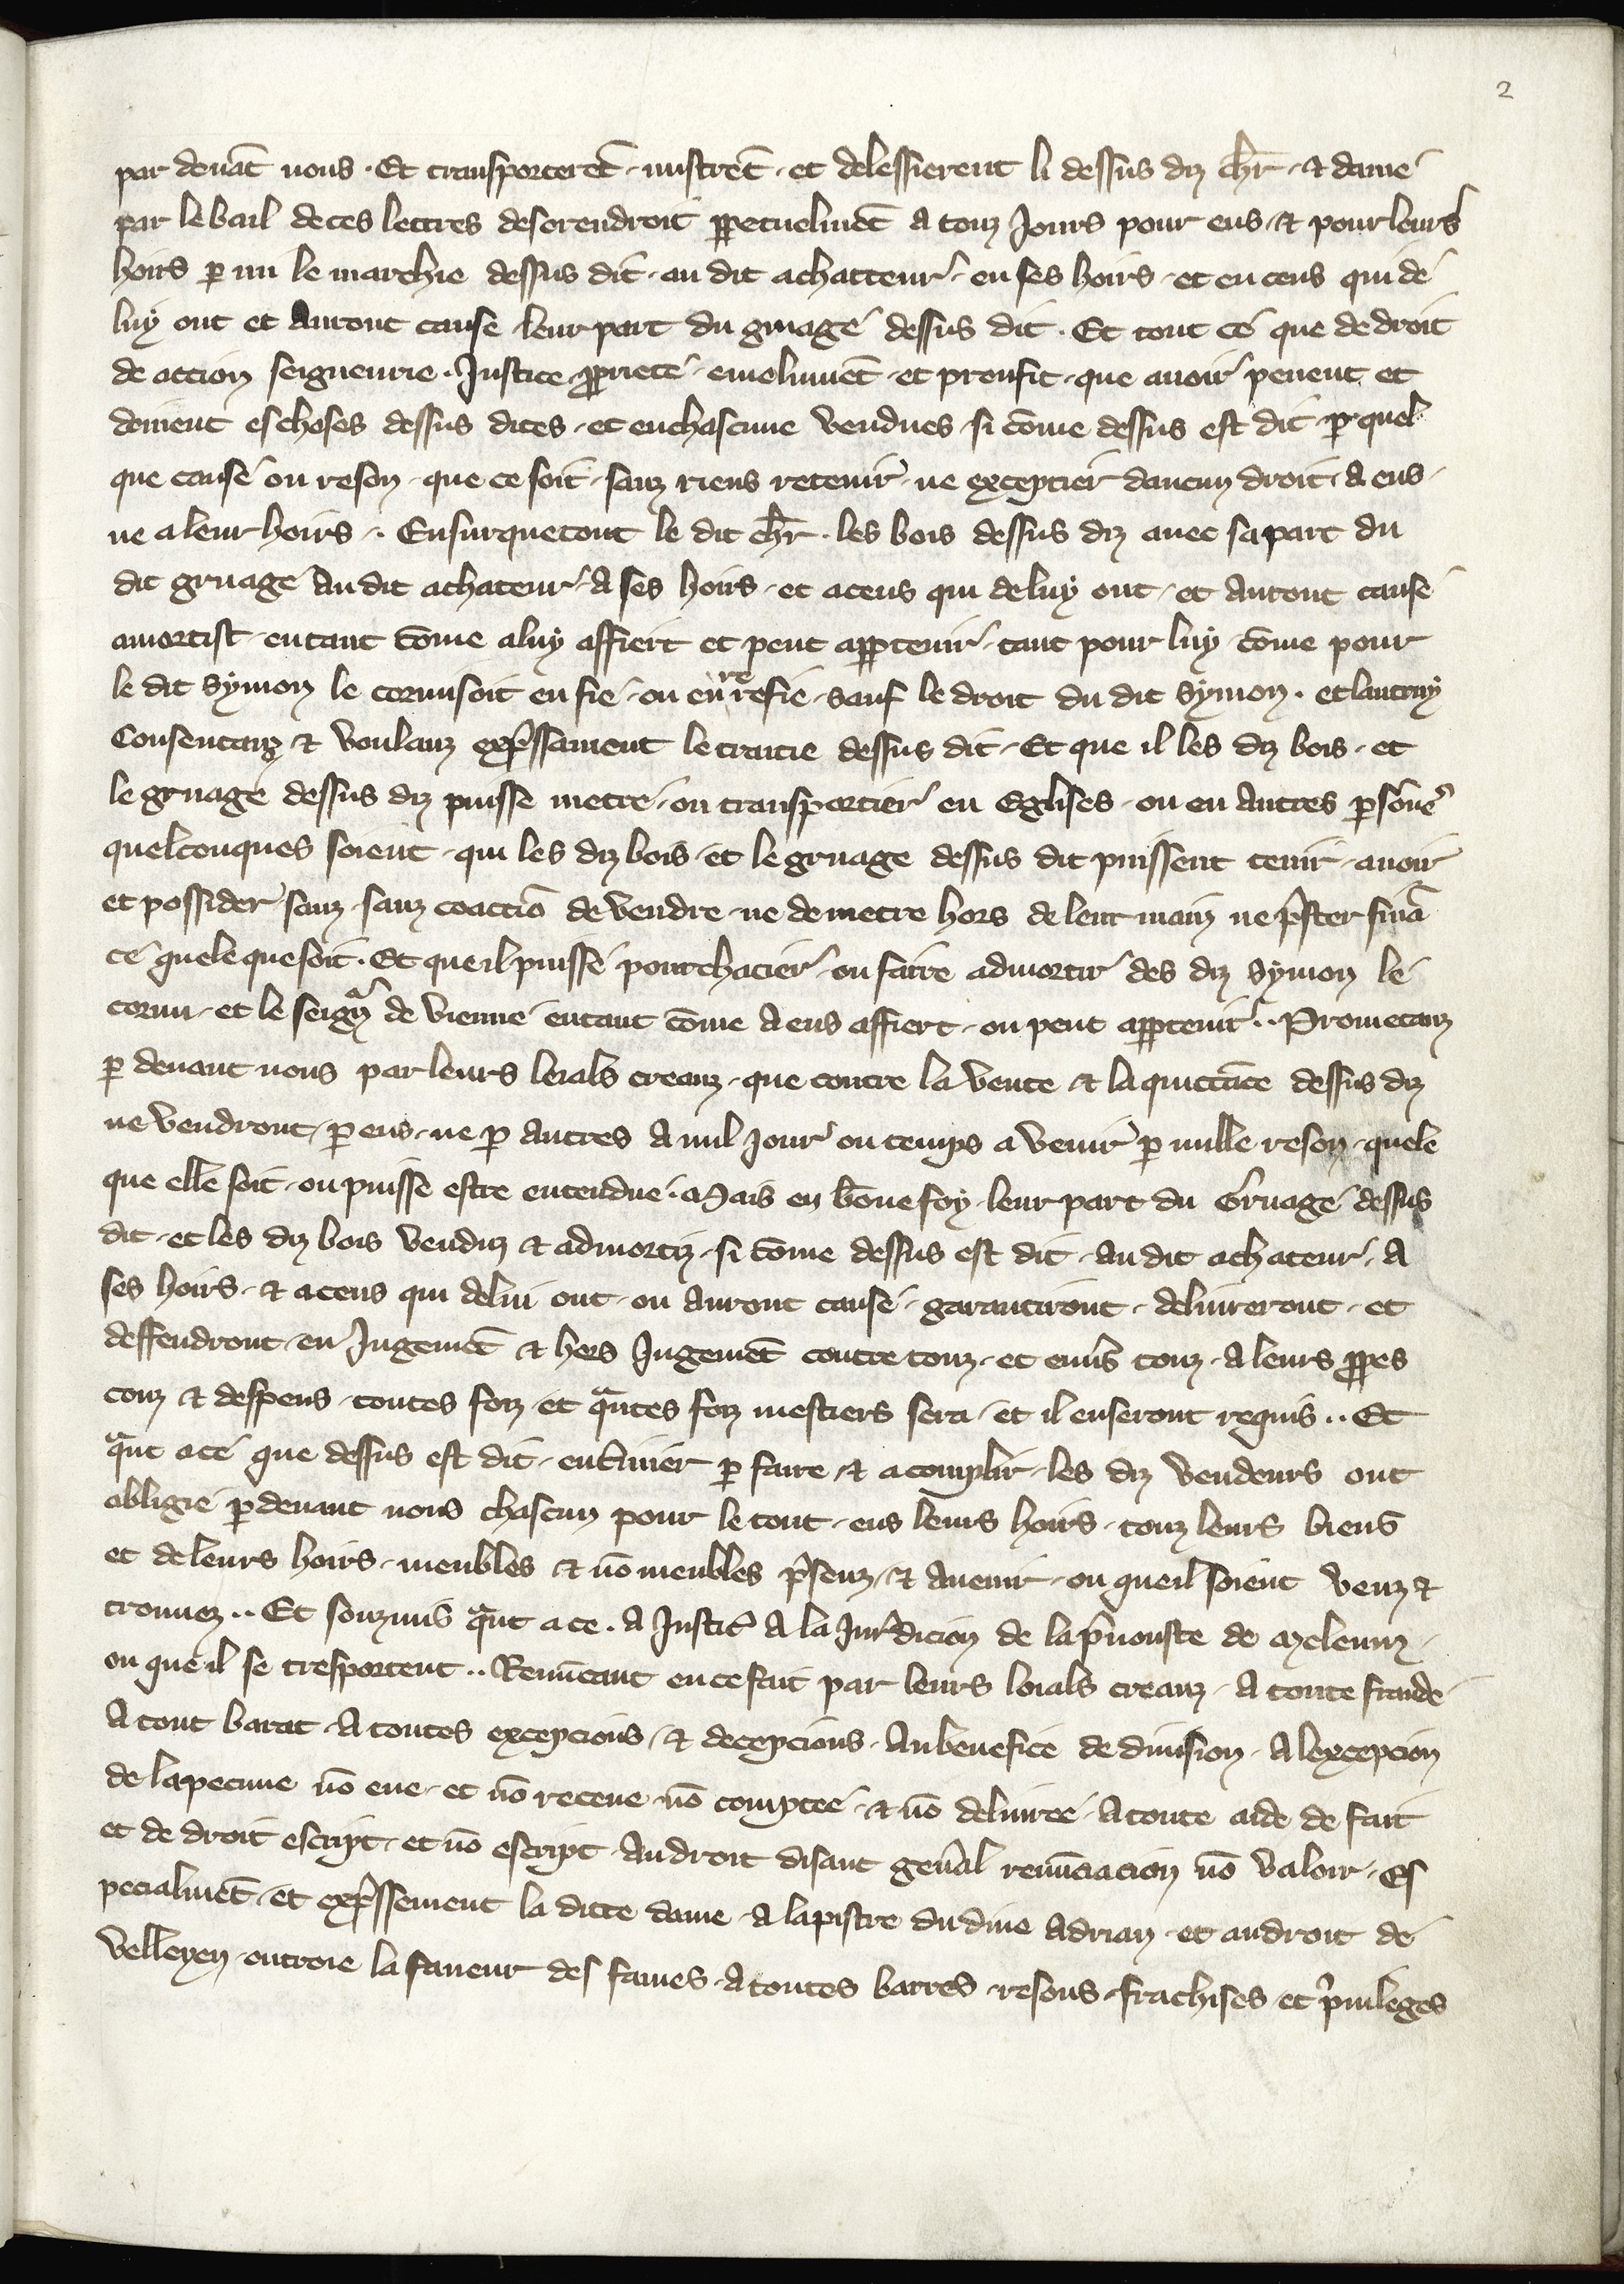 2
par deuāt nous · Et transporterēt · mistrēt · et delessierent li dessus diz chr̄ · ⁊ dame
par le bail de ces lettres desorendroit ꝑpetuelmēt a touz Jours pour eus ⁊ pour leurs
hoirs ꝑ mi le marchie dessus dit · au dit achatteur · en ses hoirs · et en ceus qui de
luy ont et Auront cause leur part du gruage dessus dit · Et tout ce que de droit
de accion seigneurie · Justice ꝓpriete · emolumēt · et proufit · que auoir peuent et
doiuent es choses dessus dites · et en chascune vendues · si cōme dessus est dit · ꝑ quel
que cause ou reson · que ce soit · sanz riens retenir · ne exceptier daucun droit · A eus ·
ne a leur hoirs · Ensurquetout le dit chr̄ · les bois dessus diz auec sa part du
dit gruage Au dit achateur · A ses hoirs · et a ceus qui de luy ont · et Auront cause
amortist · en tant cōme a luy affiert et peut apꝑtenir · tant pour luy · cōme pour
le dit Symon le cornu soit en fie · ou en rerefie · sauf le droit du dit Symon · et lautruy
Consentanz ⁊ voulanz exp̄ssament le traitie dessus dit · Et que il les diz bois · et
le gruage dessus diz puisse metre · ou transportier en Eglises · ou en Autres ꝑsōnes
quelconques soient · qui les diz bois · et le gruage dessus dit puissent tenir · auoir
et possider sanz · sanz coactiō de vendre · ne de metre hors de leur main ne p̄ster finā
ce quele que soit · Et que il puisse pourchacier · ou faire admortir des diz Symon le
cornu · et le seignr̄ de vienne entant cōme A eus affiert · ou peut apꝑtenir ·· Prometanz
ꝑ deuant nous par leurs loials creanz · que contre la vente ⁊ la quittāce dessus diz
ne vendront · ꝑ eus · ne ꝑ Autres A nul Jour ou temps a venir ꝑ nulle reson · quele
que elle soit · ou puisse estre entendue · Mais en bōne foy · leur part du Gruage dessus
dit · et les diz bois venduz ⁊ admortiz · si cōme dessus est dit · Au dit achateur · A
ses hoirs · ⁊ a ceus qui de lui ont · ou Auront cause · garantiront · deliureront · et
deffendront · en Jugemēt ⁊ hors Jugemēt contre touz · et enu̾s touz · A leurs ꝓpes
couz ⁊ despens · toutes foiz · et qͣntes foiz mestiers sera · et il en seront requis ·· Et
qͣnt a ce que dessus est dit · ent̾iner ꝑ faire ⁊ acomplir · les diz vendeurs ont
obligie ꝑdeuant nous chascun pour le tout · eus leurs hoirs · touz leurs biens
et de leurs hoirs · meubles ⁊ nō meubles p̄senz · ⁊ Auenir · ou que il soient venz ⁊
trouuez ·· Et souzmis qͣnt a ce · A Justic̾ A la Jur̄dicion de la p̄uouste de Meleun ·
ou que il se tresportent ·· Renūcant en ce fait par leurs loials creanz · A toute fraude
A tout barat · A toutes excepcions · ⁊ decepcions · Au benefice de diuision · A lexcepcion
de la pecune nō eue · et nō receue · nō comptee · ⁊ nō deliuree · A toute aide de fait
et de droit escript · et nō escript · Au droit disant gen̄al renūciacion nō valoir · Es
pecialmēt · et exp̄ssement la ditte dame · A lapistre du diue Adrian · et au droit de
velleyen · outroie la faueur des fames · A toutes barres · resons · frachises et p̄uileges